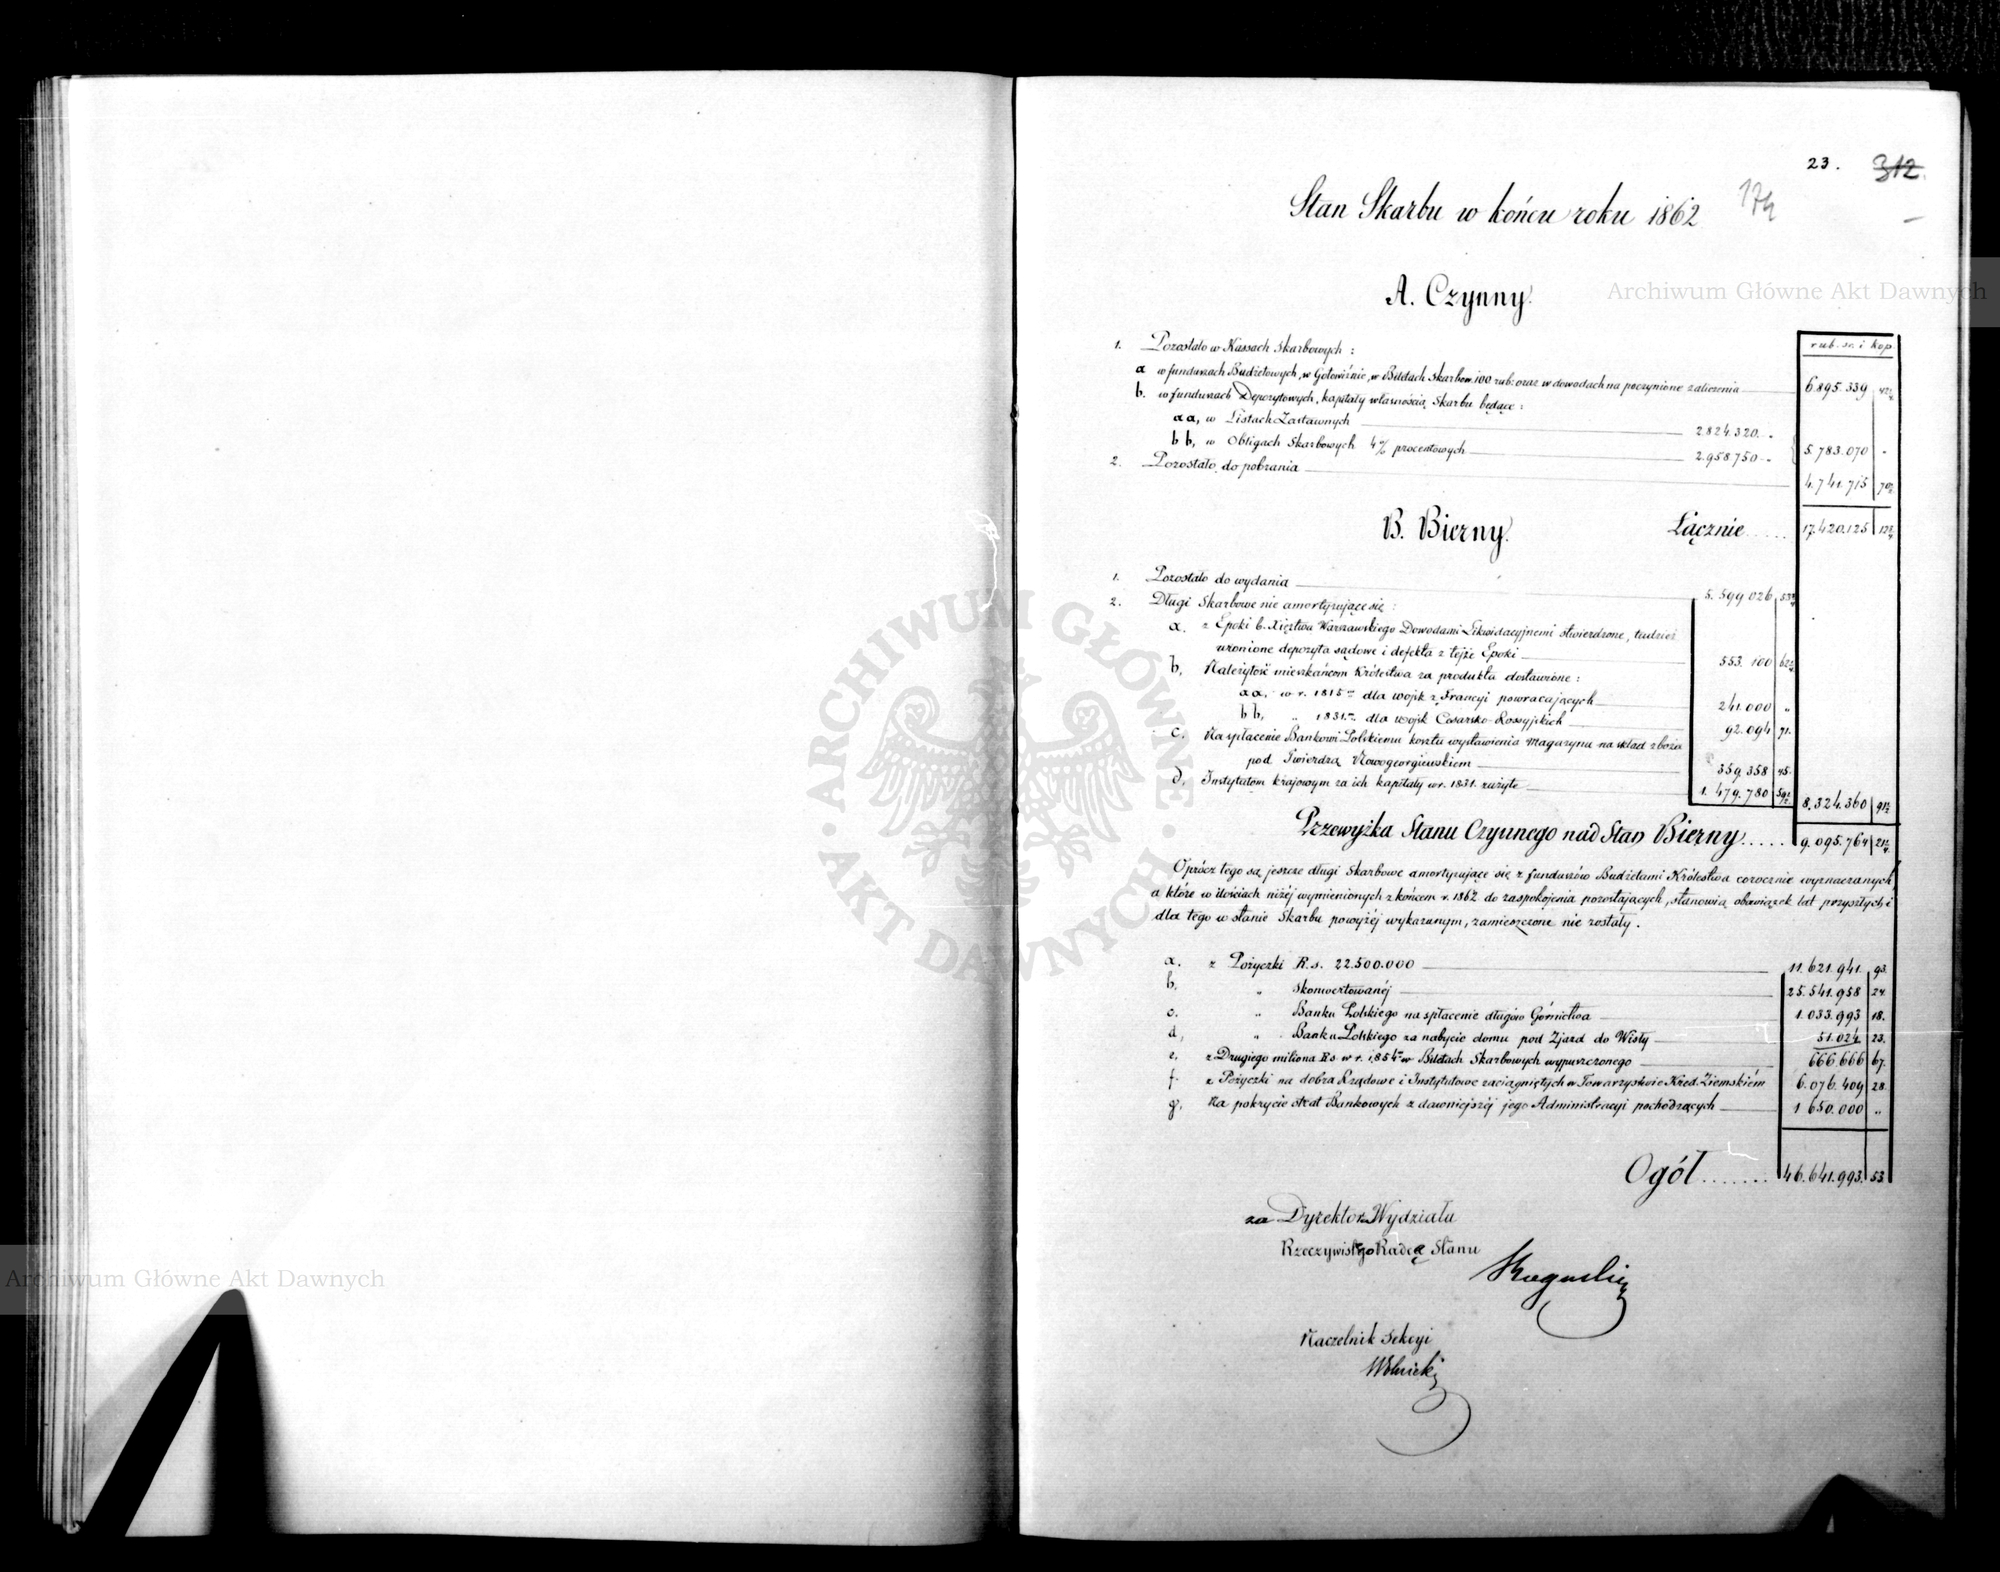 23. 312.
Stan Skarbu w końcu roku 1862 174
A. Czynny.
Archiwum Główne Akt Dawnych
rub. sr. i kop
1. Pozostało w Kassach Skarbowych :
a w funduszach Budżetowych, w Gotowiźnie, w Biletach Skarbow. 100 rub: oraz w dowodach na poczynione zaliczenia 6.895.339
b. w funduszach Depozytowych, kapitały własnością Skarbu będące :
aa, w Listach Zastawnych 2.824.320. „
bb, w Obligach Skarbowych 4% procentowych 2.958.750 „ 5.783.070 „
2. Pozostało do pobrania 4.741.715
Łącznie..... 17.420.125
B. Bierny.
1. Pozostało do wydania 5.599.026
2. Długi Skarbowe nie amortyzujące się :
a. z Epoki b. Xięztwa Warszawskiego Dowodami Likwidacyjnemi stwierdzone, tudzież
uronione depozyta sądowe i defekta z tejże Epoki 553.100
b, Należytość mieszkańcom Królestwa za produkta dostawione :
aa, w r. 1815 dla wojsk z Francyi powracających 241.000 „
bb, „ 1831 dla wojsk Cesarsko-Rossyjskich 92.094 71.
c. Na spłacenie Bankowi Polskiemu kosztu wystawienia Magazynu na skład zboża
pod Twierdzą Nowogeorgiewskiem 359.358 45.
d, Instytutom krajowym za ich kapitały w r. 1831. zużyte 1.479.780 8.324.360
Przewyżka Stanu Czynnego nad Stan Bierny..... 9.095.764
Oprócz tego są jeszcze długi Skarbowe amortyzujące się z funduszów Budżetami Królestwa corocznie wyznaczanych,
a które w ilościach niżej wymienionych z końcem r. 1862 do zaspokojenia pozostających, stanowią obowiązek lat przyszłych, i
dla tego w stanie Skarbu powyżej wykazanym, zamieszczone nie zostały.
a. z Pożyczki R.s. 22.500.000 11.621.941. 93.
b. „ Skonwertowanéj 25.541.958 24.
c. „ Banku Polskiego na spłacenie długów Górnictwa 1.033.993 18.
d, „ Banku Polskiego za nabycie domu pod Zjazd do Wisły 51.024 23.
e, z Drugiego miliona Rs. w r. 1854 w Biletach Skarbowych wypuszczonego 666.666 67.
f. z Pożyczki na dobra Rządowe i Instytutowe zaciągniętych w Towarzystwie Kred. Ziemskiém 6.076.409 28.
g, Na pokrycie strat Bankowych z dawniejszéj jego Administracyi pochodzących 1 650.000 „
Ogół....... 46.641.993. 53.
za Dyrektora Wydziału
Rzeczywistego Radcę Stanu
Naczelnik Sekcyi
Wolnicki
Archiwum Główne Akt Dawnych
ARCHIWUM GŁÓWNE · AKT DAWNYCH ·